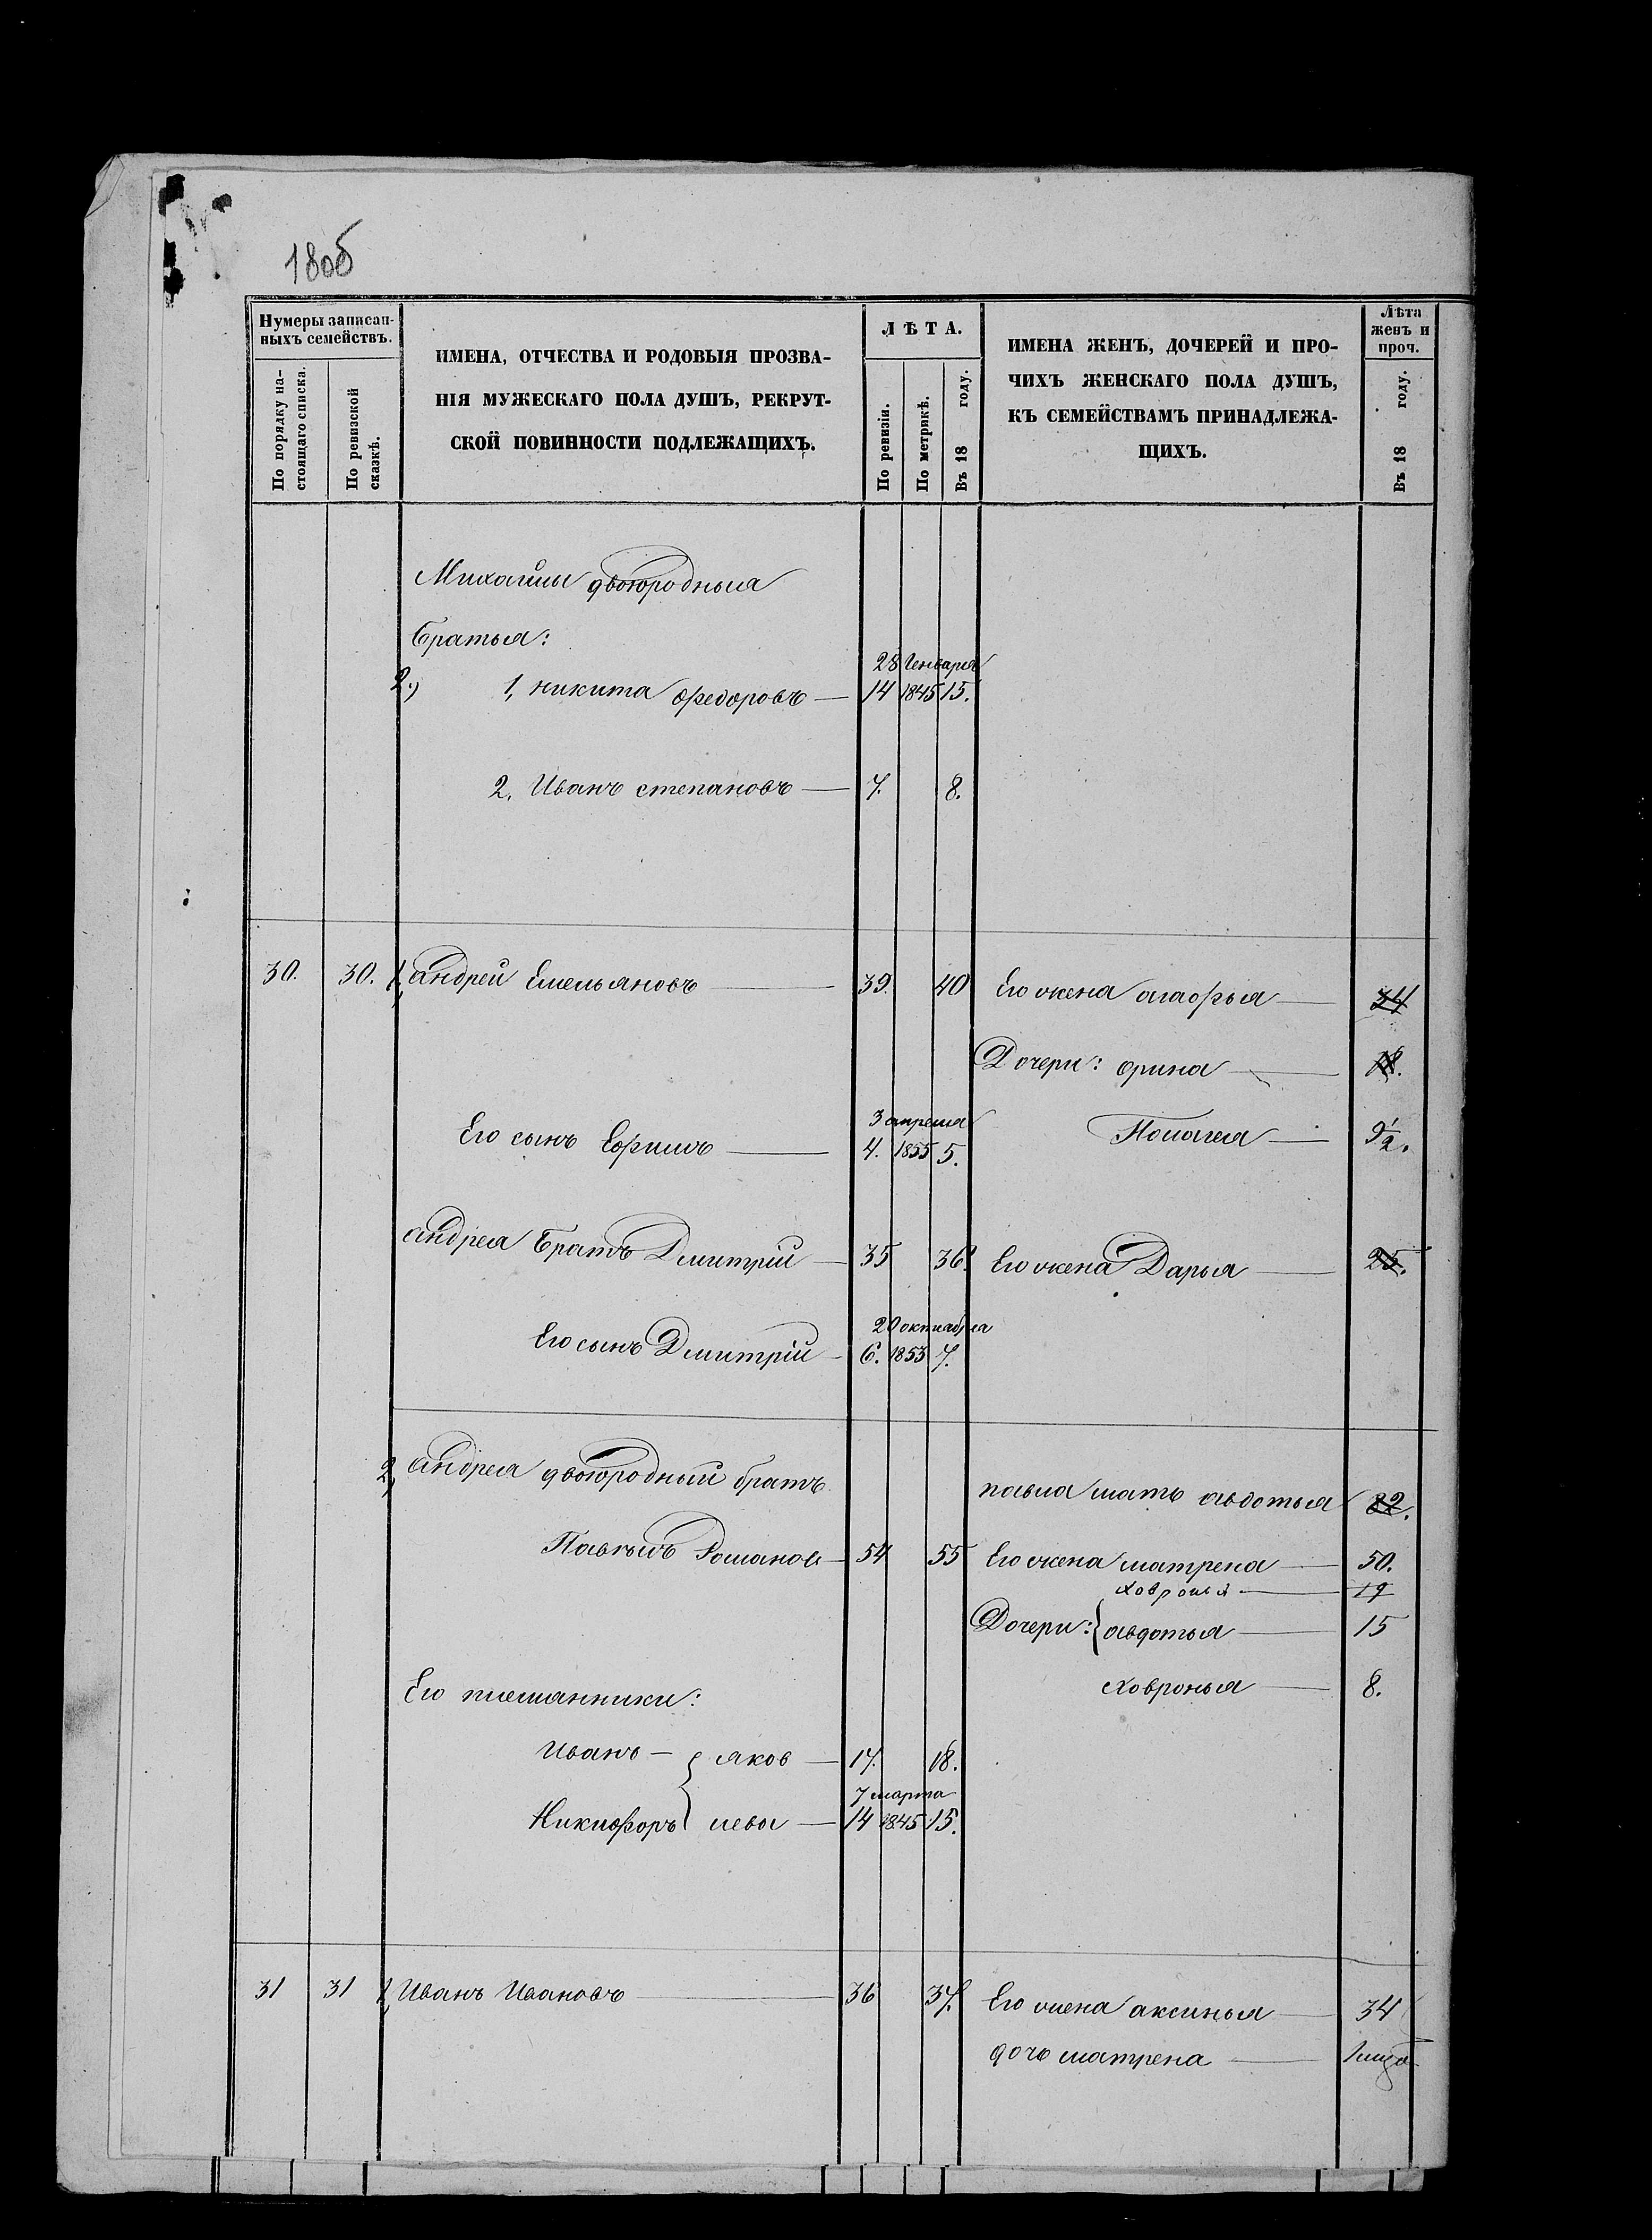 180б
Нумеры записан-
ныхъ семействъ.
По порядку на-
стоящаго списка.
По ревизской
сказкѣ.
ИМЕНА, ОТЧЕСТВА И РОДОВЫЯ ПРОЗВА-
НІЯ МУЖЕСКАГО ПОЛА ДУШЪ, РЕКРУТ-
СКОЙ ПОВИННОСТИ ПОДЛЕЖАЩИХЪ.
ЛѢТА.
По ревизіи.
По метрикѣ.
Въ 18 году.
ИМЕНА ЖЕНЪ, ДОЧЕРЕЙ И ПРО-
ЧИХЪ ЖЕНСКАГО ПОЛА ДУШЪ,
КЪ СЕМЕЙСТВАМЪ ПРИНАДЛЕЖА-
ЩИХЪ.
Лѣта
женъ и
проч.
Въ 18 году.
Михайлы двоюродныя
братья:
28 Генваря
2,) 1, никита федоровъ — 14 1845 15.
2, Иванъ степановъ — 7. 8.
30. 30. 1, андрей Емельяновъ — 39. 40 Его жена агафья — 34
Дочери: орина — 18.
3 апреля
Его сынъ Ефимъ — 4. 1855 5. Полагея — 9 1/2.
андрея братъ Дмитрій — 35 36. Его жена Дарья — 25.
20 октября
Его сынъ Дмитрій — 6. 1853 7.
2, андрея двоюродный братъ павла мать авдотья 82.
Романов — 54 55 Его жена матрена — 50.
ховронья — 19
Дочери: авдотья — 15
ховронья — 8.
Его племянники:
Иванъ — яков — 17. 18.
7 марта
Никифоръ левы — 14 1845 15.
31 31 1, Иванъ Ивановъ — 36 37. Его жена аксинья — 34
дочь матрена —